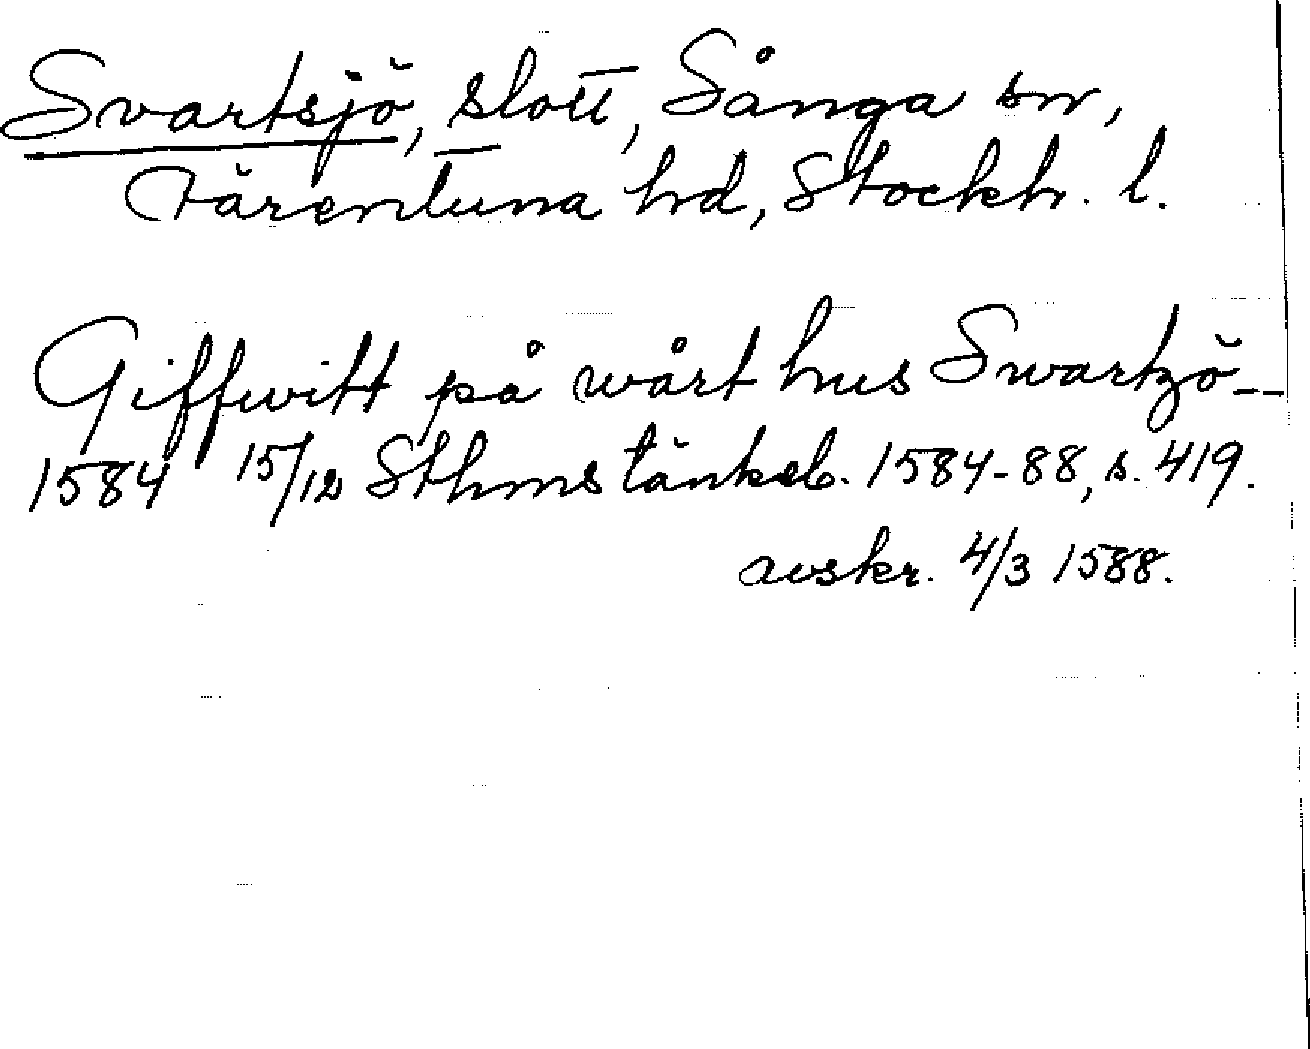 Svartsjö, slott, Sånga sn,
Färentuna hd, Stockh. l.
Giffwitt på wårt hus Swartzö--
1584 15/12 Sthms tänkeb. 1584-88, s. 419.
avskr. 4/3 1588.